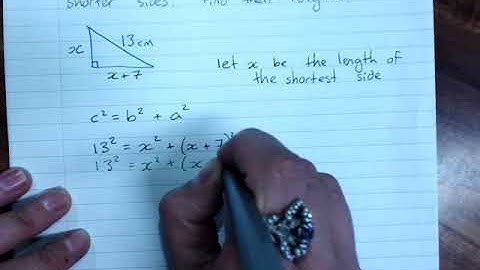 shorter sides. Find their
x
13cm
x + 7
let x be the length of
the shortest side
c² = b² + a²
13² = x² + (x + 7)²
13² = x² + (x